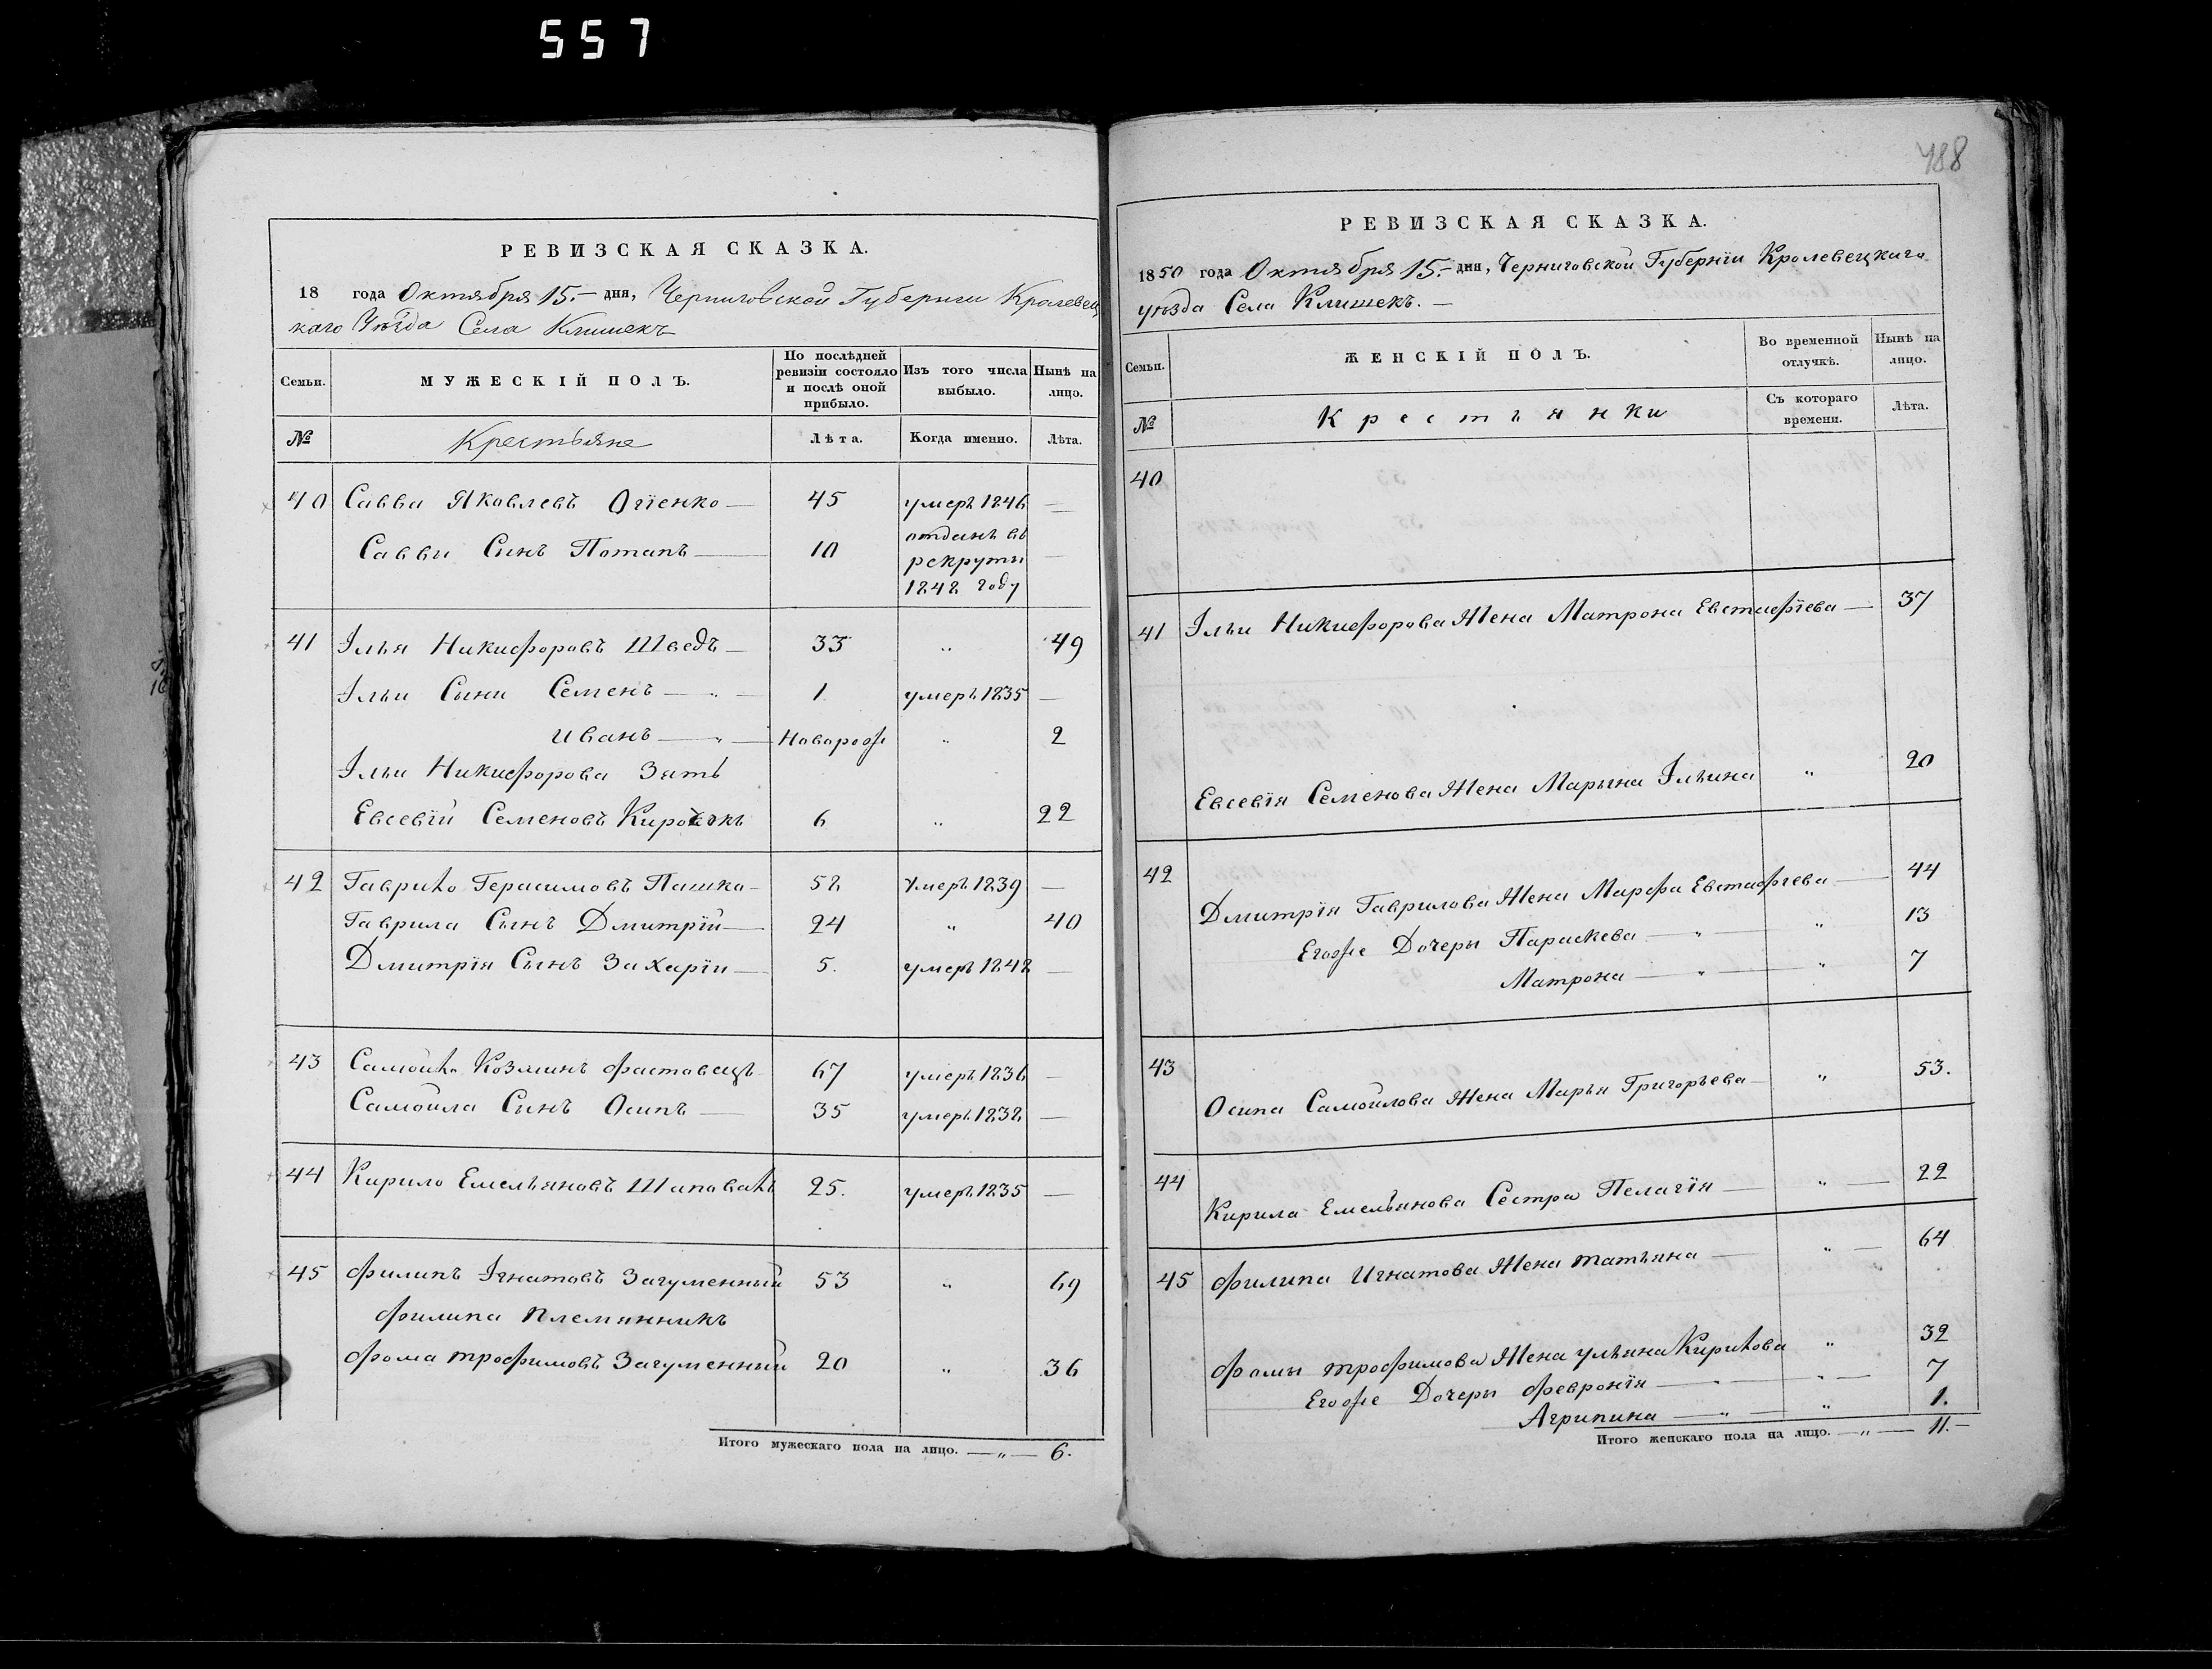 557
РЕВИЗСКАЯ СКАЗКА.
18 года Октября 15.- дня, Черниговской Губернии Кролевец
каго Уѣзда Села Клишекъ
Семьи.
МУЖЕСКІЙ ПОЛЪ.
По послѣдней ревизіи состояло и послѣ оной прибыло.
Изъ того числа выбыло.
Нынѣ на лицо.
№ Крестьяне Лѣта. Когда именно. Лѣта.
40 Савва Яковлевъ Огіенко — 45 умеръ 1846 —
Савви Синъ Потапъ — 10 отданъ въ рекруты 1848 году —
41 Ілья Никифоровъ Шведъ — 33 „ 49
Ільи Сыни Семенъ — „ — 1 умеръ 1835 —
Иванъ — „ — Новорож „ 2
Ільи Никифорова Зять
Евсевій Семеновъ 6 „ 22
42 Гаврило Герасимовъ Пашко — 58 Умеръ 1839 —
Гаврила Сынъ Дмитрій — 24 „ 40
Дмитрія Сынъ Захарій — 5. умеръ 1848 —
43 Самойло Козминъ Фастовецъ 67 умеръ 1836 —
Самойла Синъ Осипъ — 35 умеръ 1838 —
44 Кирило Емельяновъ Шаповалъ 25. умеръ 1835 —
45 Филипъ Ігнатовъ Загуменный 53 „ 69
Филипа племянникъ
Фома Трофимовъ Загуменный 20 „ 36
Итого мужескаго пола на лицо. — „ — 6.
488
РЕВИЗСКАЯ СКАЗКА.
1850 года Октября 15.- дня, Черниговской Губерніи Кролевецкаго
уѣзда Села Клишекъ. —
Семьи.
ЖЕНСКІЙ ПОЛЪ.
Во временной отлучкѣ.
Нынѣ на лицо.
№ Крестьянки Съ котораго времени. Лѣта.
40
41 Ільи Никифорова Жена Матрона Евстафіева — 37
Евсевія Семенова Жена Марына Ільина „ 20
42 Дмитрія Гаврилова Жена Марфа Евстафіева — 44
Егоже Дочеры Параскева — „ — „ 13
Матрона — „ — „ 7
43 Осипа Самойлова Жена Марья Григорьева — „ 53.
44 Кирила Емельянова Сестра Пелагія — „ — 22
45 Филипа Игнатова Жена Татьяна — „ — 64
Фомы Трофимова Жена Ульяна Кирилова „ 32
Егоже Дочеры Февронія — „ — „ — 7
Агрипина — „ — „ 1.
Итого женскаго пола на лицо. — „ — 11.-